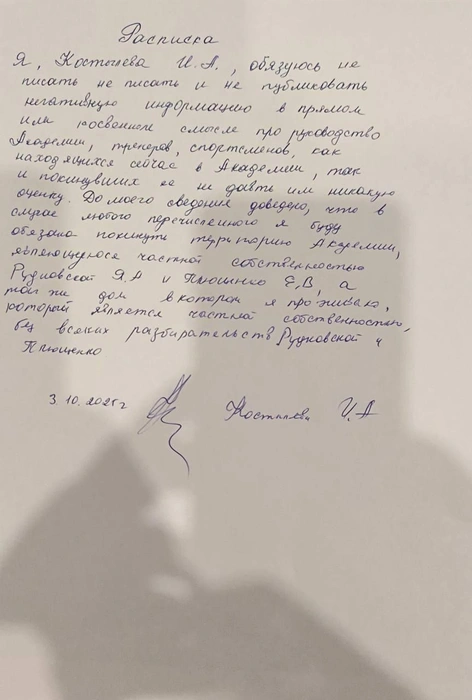 Расписка
Я, Костылева И.А., обязуюсь не
писать не писать и не публиковать
негативную информацию в прямом
или косвенном смысле про руководство
Академии, тренеров, спортсменов, как
находящихся сейчас в Академии, так
и покинувших ее не давть им никакую
оценку. До моего сведения доведено, что в
случае любого перечисленного я буду
обязана покинуть территорию Академии,
являющуюся частной собственностью
Рудковской Я.А и Плющенко Е.В, а
так же дом в котором я проживаю,
который является частной собственностью,
без всяких разбирательств Рудковской и
Плющенко
3.10.2025г Костылева И.А